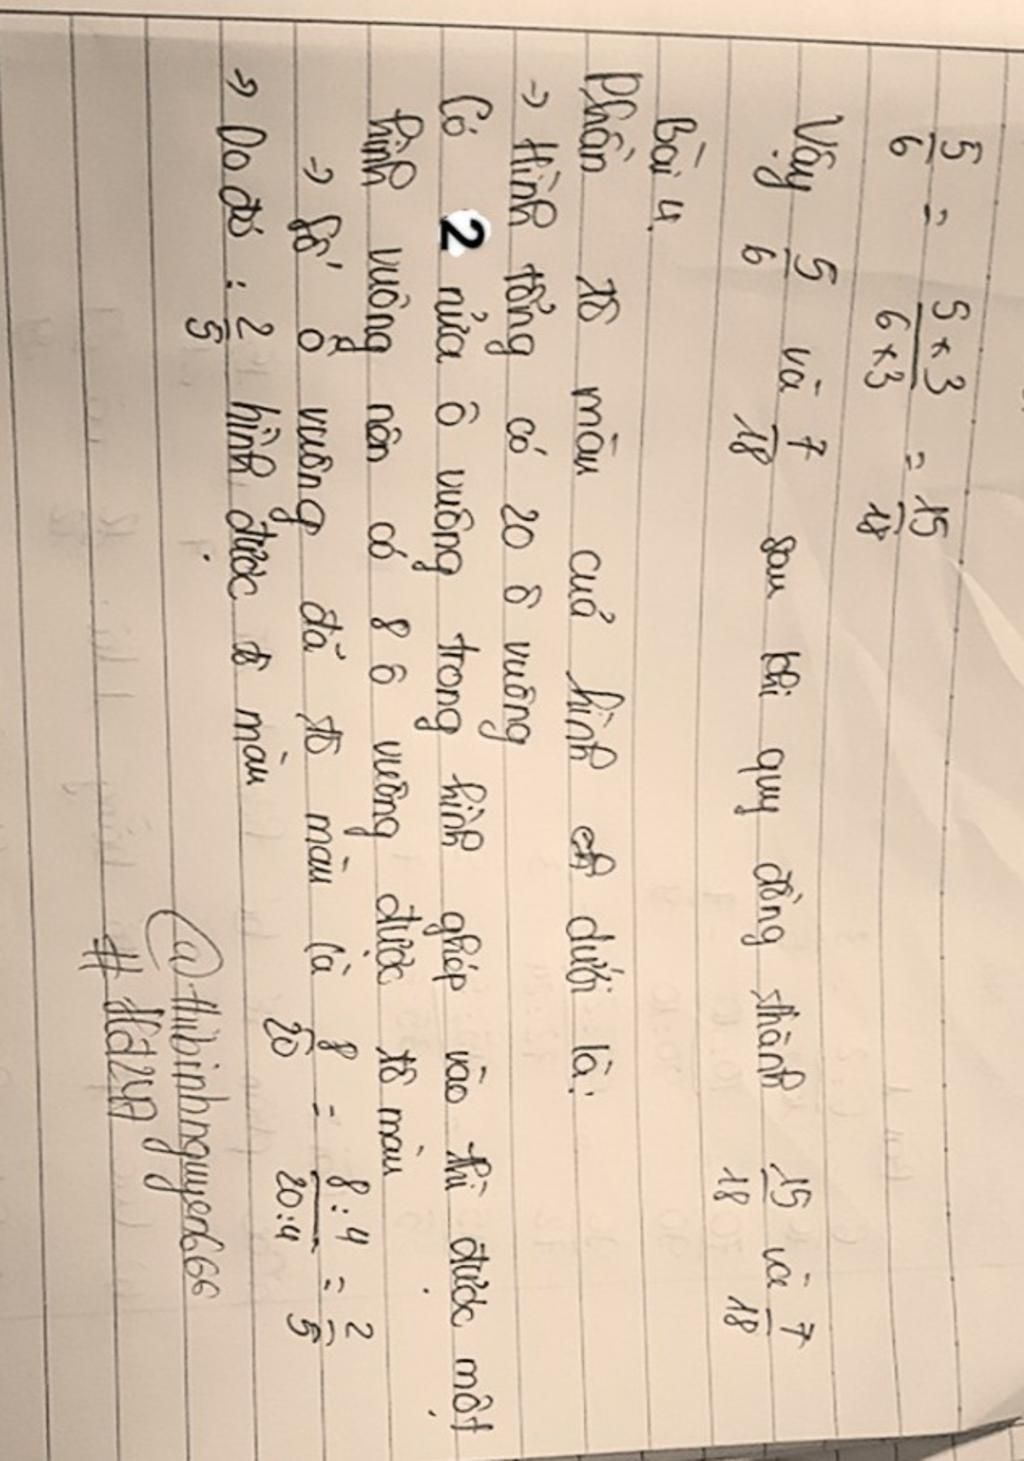 5/6 = 5×3/6×3 = 15/18
Vậy 5/6 và 7/18 sau khi quy đồng thành 15/18 và 7/18
Bài 4.
Phần tô màu của hình dưới là:
→ Hình tổng có 20 ô vuông
Có 2 nửa ô vuông trong hình ghép vào thì được một
hình vuông nên có 8 ô vuông được tô màu
→ Số ô vuông đã tô màu là 8/20 = 8:4/20:4 = 2/5
→ Do đó : 2/5 hình được tô màu
@thibinhnguyen666
#Hd247